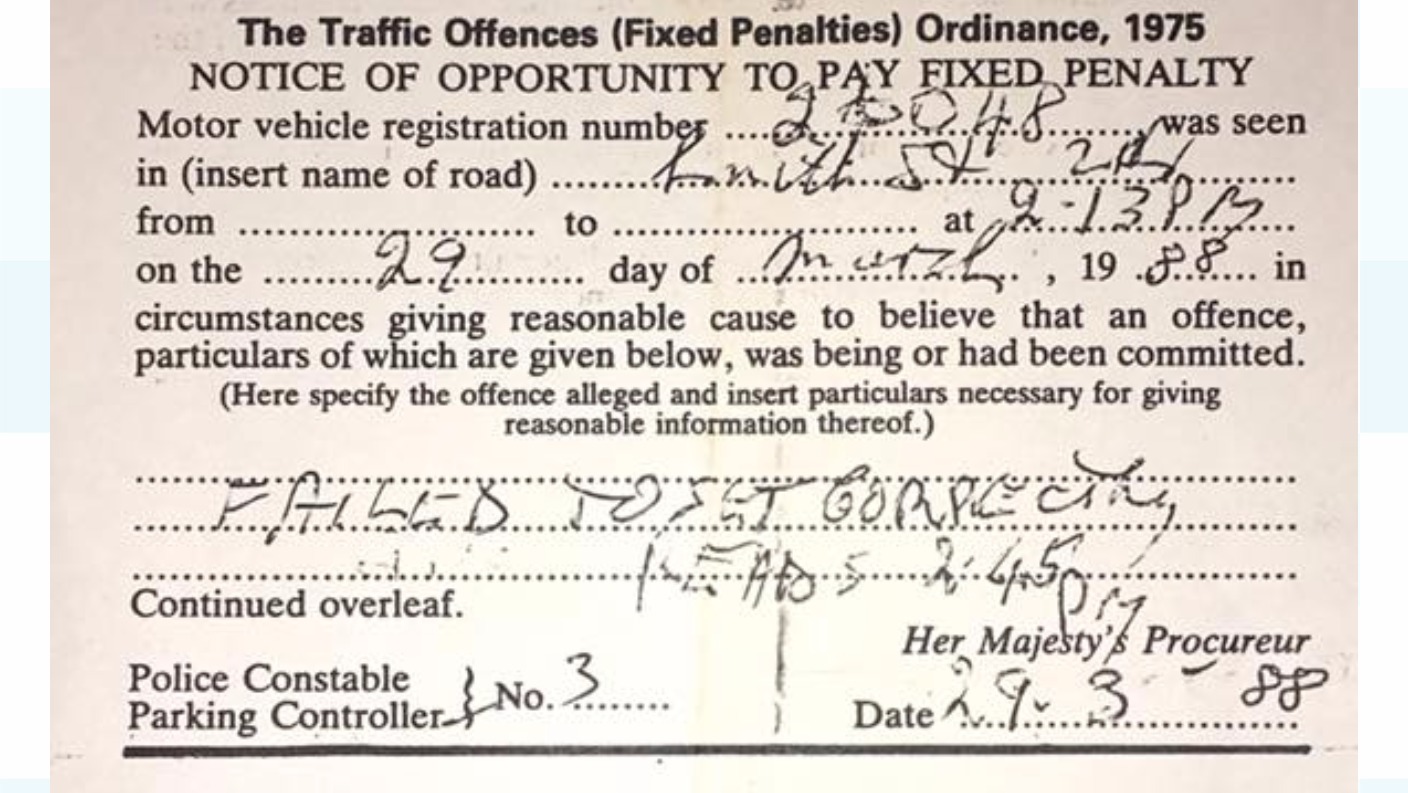 The Traffic Offences (Fixed Penalties) Ordinance, 1975
NOTICE OF OPPORTUNITY TO PAY FIXED PENALTY
Motor vehicle registration number .................... was seen
in (insert name of road) .......Smith St 2H..........
from .............................. to .............................. at 2-13PM
on the ..........29.......... day of ...March..., 19 .88... in
circumstances giving reasonable cause to believe that an offence,
particulars of which are given below, was being or had been committed.
(Here specify the offence alleged and insert particulars necessary for giving
reasonable information thereof.)
FAILED TO SET CORRECTLY
READS 2.45PM
Continued overleaf.
Her Majesty's Procureur
Police Constable
Parking Controller } No. 3.........
Date 29. 3 - 88